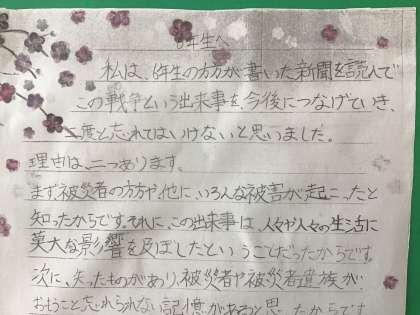 6年生へ
私は、6年生の方方が書いた新聞を読んで
この戦争という出来事を、今後につなげていき、
二度と忘れてはいけないと思いました。
理由は、二つあります。
まず、被災者の方や、他に、いろんな被害が起こったと
知ったからです。それに、この出来事は、人々や人々の生活に
莫大な影響を及ぼしたということだったからです。
次に、失ったものがあり、被災者や被災者遺族が
おもうこと忘れられない記憶があると思ったからです